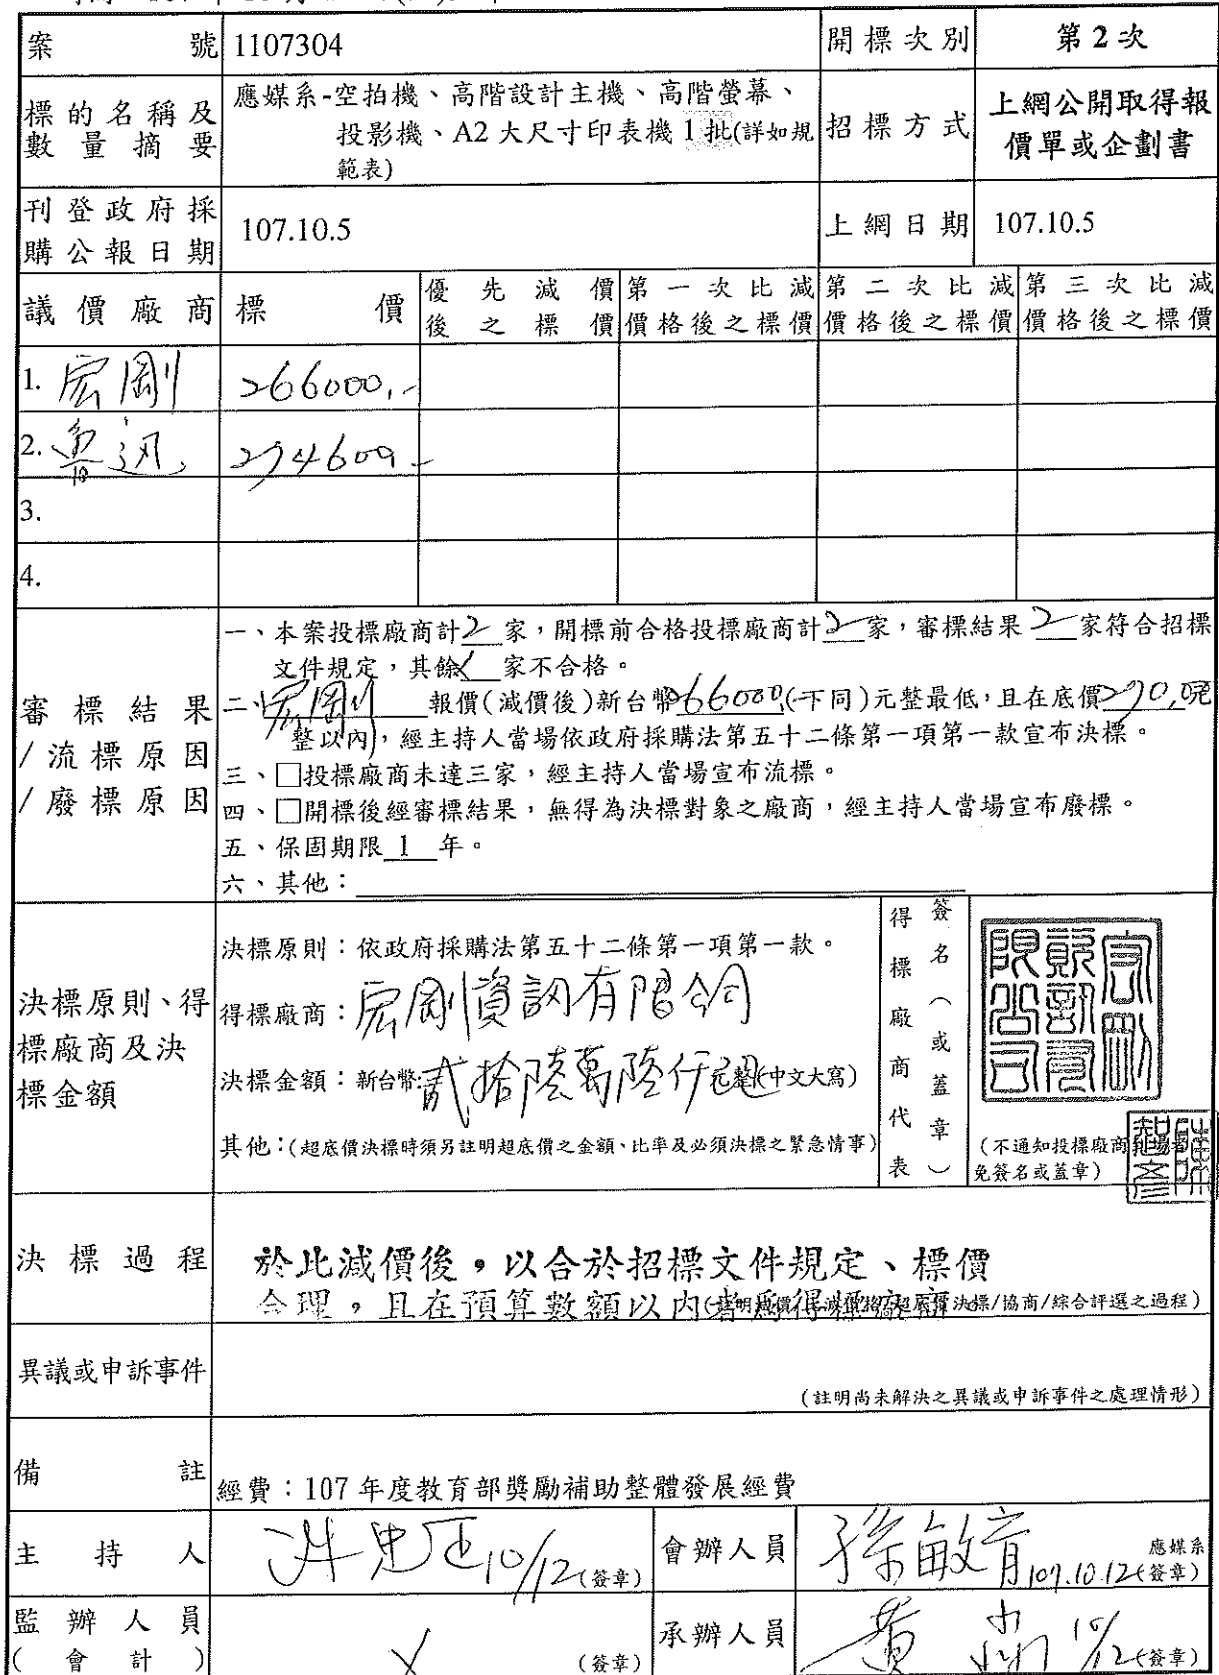 案號 1107304 開標次別 第2次
標的名稱及數量摘要 應媒系-空拍機、高階設計主機、高階螢幕、
投影機、A2大尺寸印表機1批(詳如規
範表)
招標方式 上網公開取得報
價單或企劃書
刊登政府採
購公報日期 107.10.5 上網日期 107.10.5
議價廠商 標價 優先減價後之標價 第一次比減價格後之標價 第二次比減價格後之標價 第三次比減價格後之標價
1. 宏剛 266000.-
2. 魯迅 274600.-
3.
4.
審標結果
/流標原因
/廢標原因
一、本案投標廠商計2家,開標前合格投標廠商計2家,審標結果2家符合招標
文件規定,其餘 家不合格。
二、宏剛 報價(減價後)新台幣266000(下同)元整最低,且在底價270,0元
整以內,經主持人當場依政府採購法第五十二條第一項第一款宣布決標。
三、□投標廠商未達三家,經主持人當場宣布流標。
四、□開標後經審標結果,無得為決標對象之廠商,經主持人當場宣布廢標。
五、保固期限 1 年。
六、其他:
決標原則、得
標廠商及決
標金額
決標原則:依政府採購法第五十二條第一項第一款。
得標廠商:宏剛資訊有限公司
決標金額:新台幣:貳拾陸萬陸仟元整(中文大寫)
其他:(超底價決標時須另註明超底價之金額、比率及必須決標之緊急情事)
得標廠商代表
簽名(或蓋章)
宏剛資訊有限公司
(不通知投標廠商到場者
免簽名或蓋章)
陳智彥
決標過程 於比減價後,以合於招標文件規定、標價
合理,且在預算數額以內者為得標廠商。
決標/協商/綜合評選之過程)
異議或申訴事件
(註明尚未解決之異議或申訴事件之處理情形)
備註 經費:107年度教育部獎勵補助整體發展經費
主持人 10/12(簽章) 會辦人員 孫敏育 107.10.12 應媒系
(簽章)
監辦人員
(會計) (簽章) 承辦人員 黃 10/12(簽章)